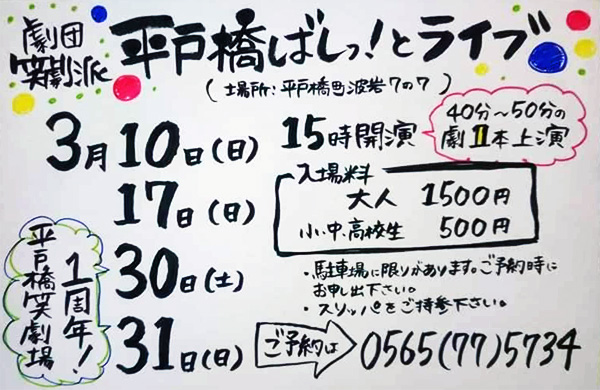 劇団
笑劇派
平戸橋ばしっ!とライブ
(場所:平戸橋町波岩7の7)
3月10日(日) 15時開演
40分〜50分の
劇Ⅱ本上演
17日(日)
30日(土)
31日(日)
入場料
大人 1500円
小、中、高校生 500円
・駐車場に限りがあります。ご予約時に
お申し出下さい。
・スリッパをご持参下さい。
1周年!
平戸橋笑劇場
ご予約は 0565(77)5734